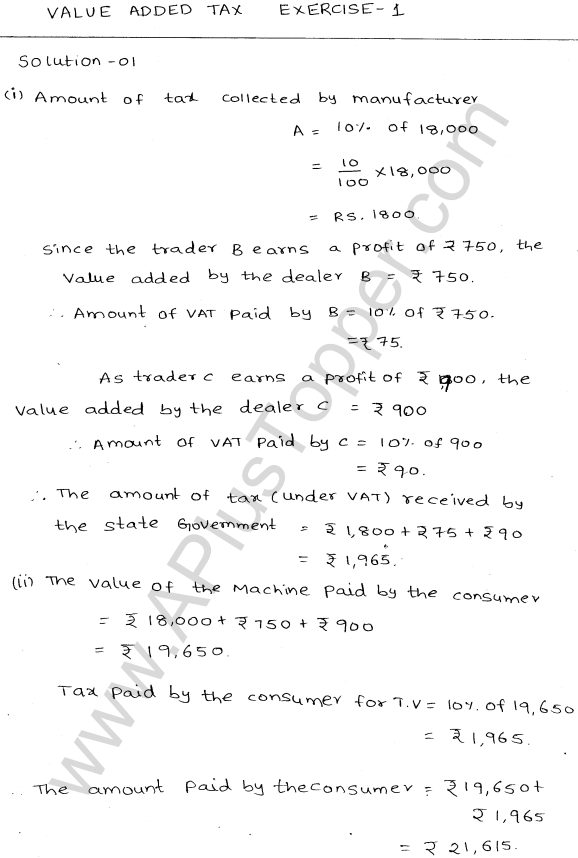 VALUE ADDED TAX EXERCISE-1
Solution-01
(i) Amount of tax collected by manufacturer
A = 10% of 18,000
= 10/100 × 18,000
= RS. 1800.
Since the trader B earns a profit of ₹ 750, the
Value added by the dealer B = ₹ 750.
∴ Amount of VAT Paid by B = 10% of ₹ 750.
= ₹ 75.
As trader C earns a profit of ₹ 900, the
Value added by the dealer C = ₹ 900
∴ Amount of VAT Paid by C = 10% of 900
= ₹ 90.
∴ The amount of tax (under VAT) received by
the state Government = ₹ 1,800 + ₹ 75 + ₹ 90
= ₹ 1,965.
(ii) The value of the Machine Paid by the consumer
= ₹ 18,000 + ₹ 750 + ₹ 900
= ₹ 19,650.
Tax Paid by the consumer for T.V = 10% of 19,650
= ₹ 1,965.
∴ The amount Paid by the consumer = ₹ 19,650 +
₹ 1,965
= ₹ 21,615.
www.APlusTopper.com